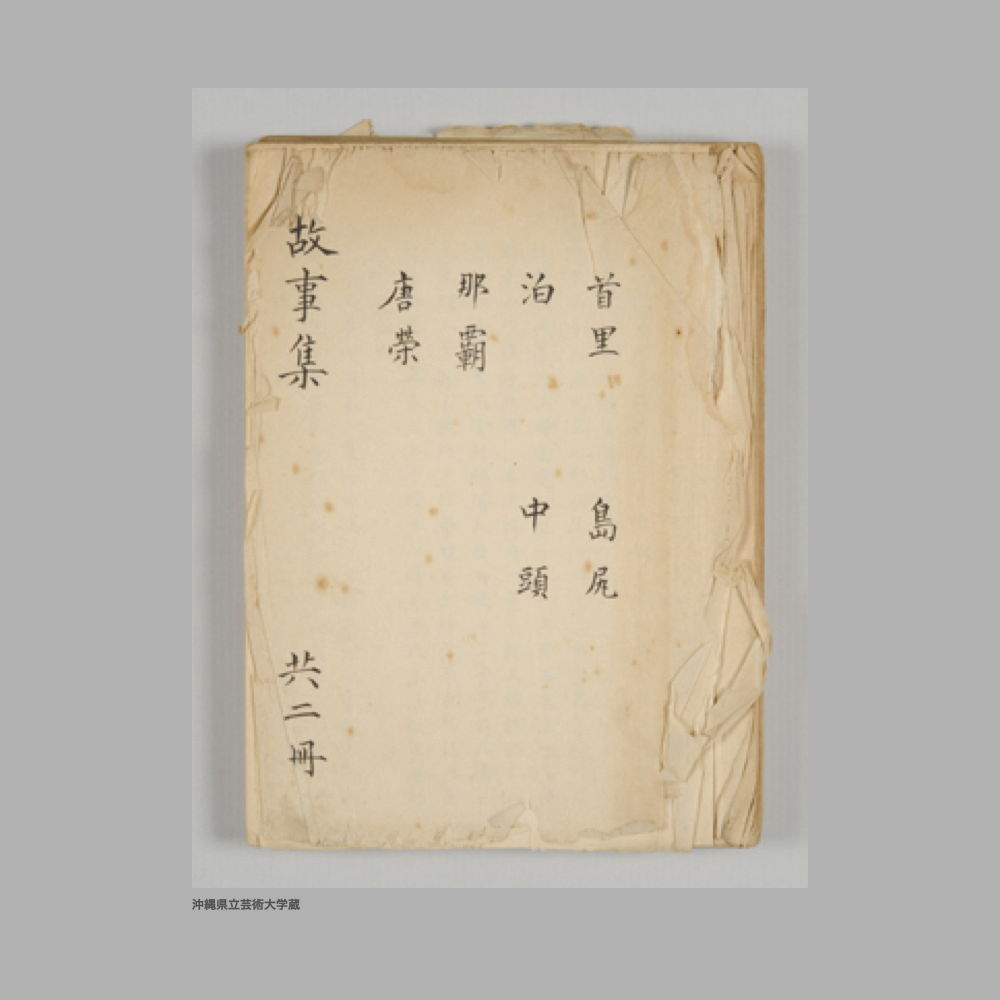 首里 島尻
泊 中頭
那覇
唐榮
故事集 共二冊
沖縄県立芸術大学蔵